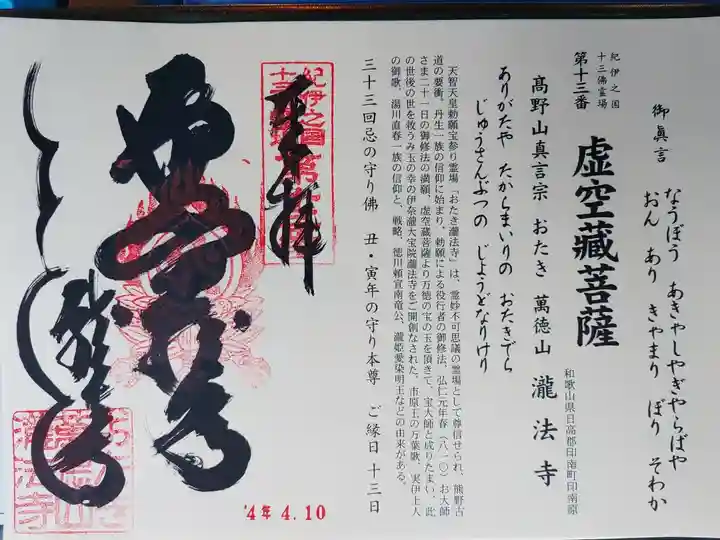 御眞言
なうぼう あきやしやぎやらばや
おん あり きやまり ぼり そわか
紀伊之国
十三佛霊場
第十三番
虚空藏菩薩
和歌山県日高郡印南町印南原
髙野山真言宗 おたき 萬徳山 瀧法寺
ありがたや たからまいりの おたきでら
じゅうさんぶつの じょうどなりけり
天智天皇勅願宝参り霊場「おたき瀧法寺」は、霊妙不可思議の霊場として尊信せられ、熊野古
道の要衝。丹生一族の信仰に始まり、勅願による役行者の御修法、弘仁元年春(八一〇)お大師
さま二十一日の御修法の満願、虚空蔵菩薩より万徳の宝の玉を頂きて、宝大師と成りたまい、此
の世後の世を救うみ玉の幸の伊奈瀧大宝院瀧法寺をご開創なされた。市原王の万葉歌、実伊上人
の御歌、湯川直春一族の信仰と、戦略、徳川頼宣南竜公、瀧姫愛染明王などの由来がある。
三十三回忌の守り佛 丑・寅年の守り本尊 ご縁日十三日
紀伊之国
十三佛霊場
奉拝
瀧法寺
'4年 4.10